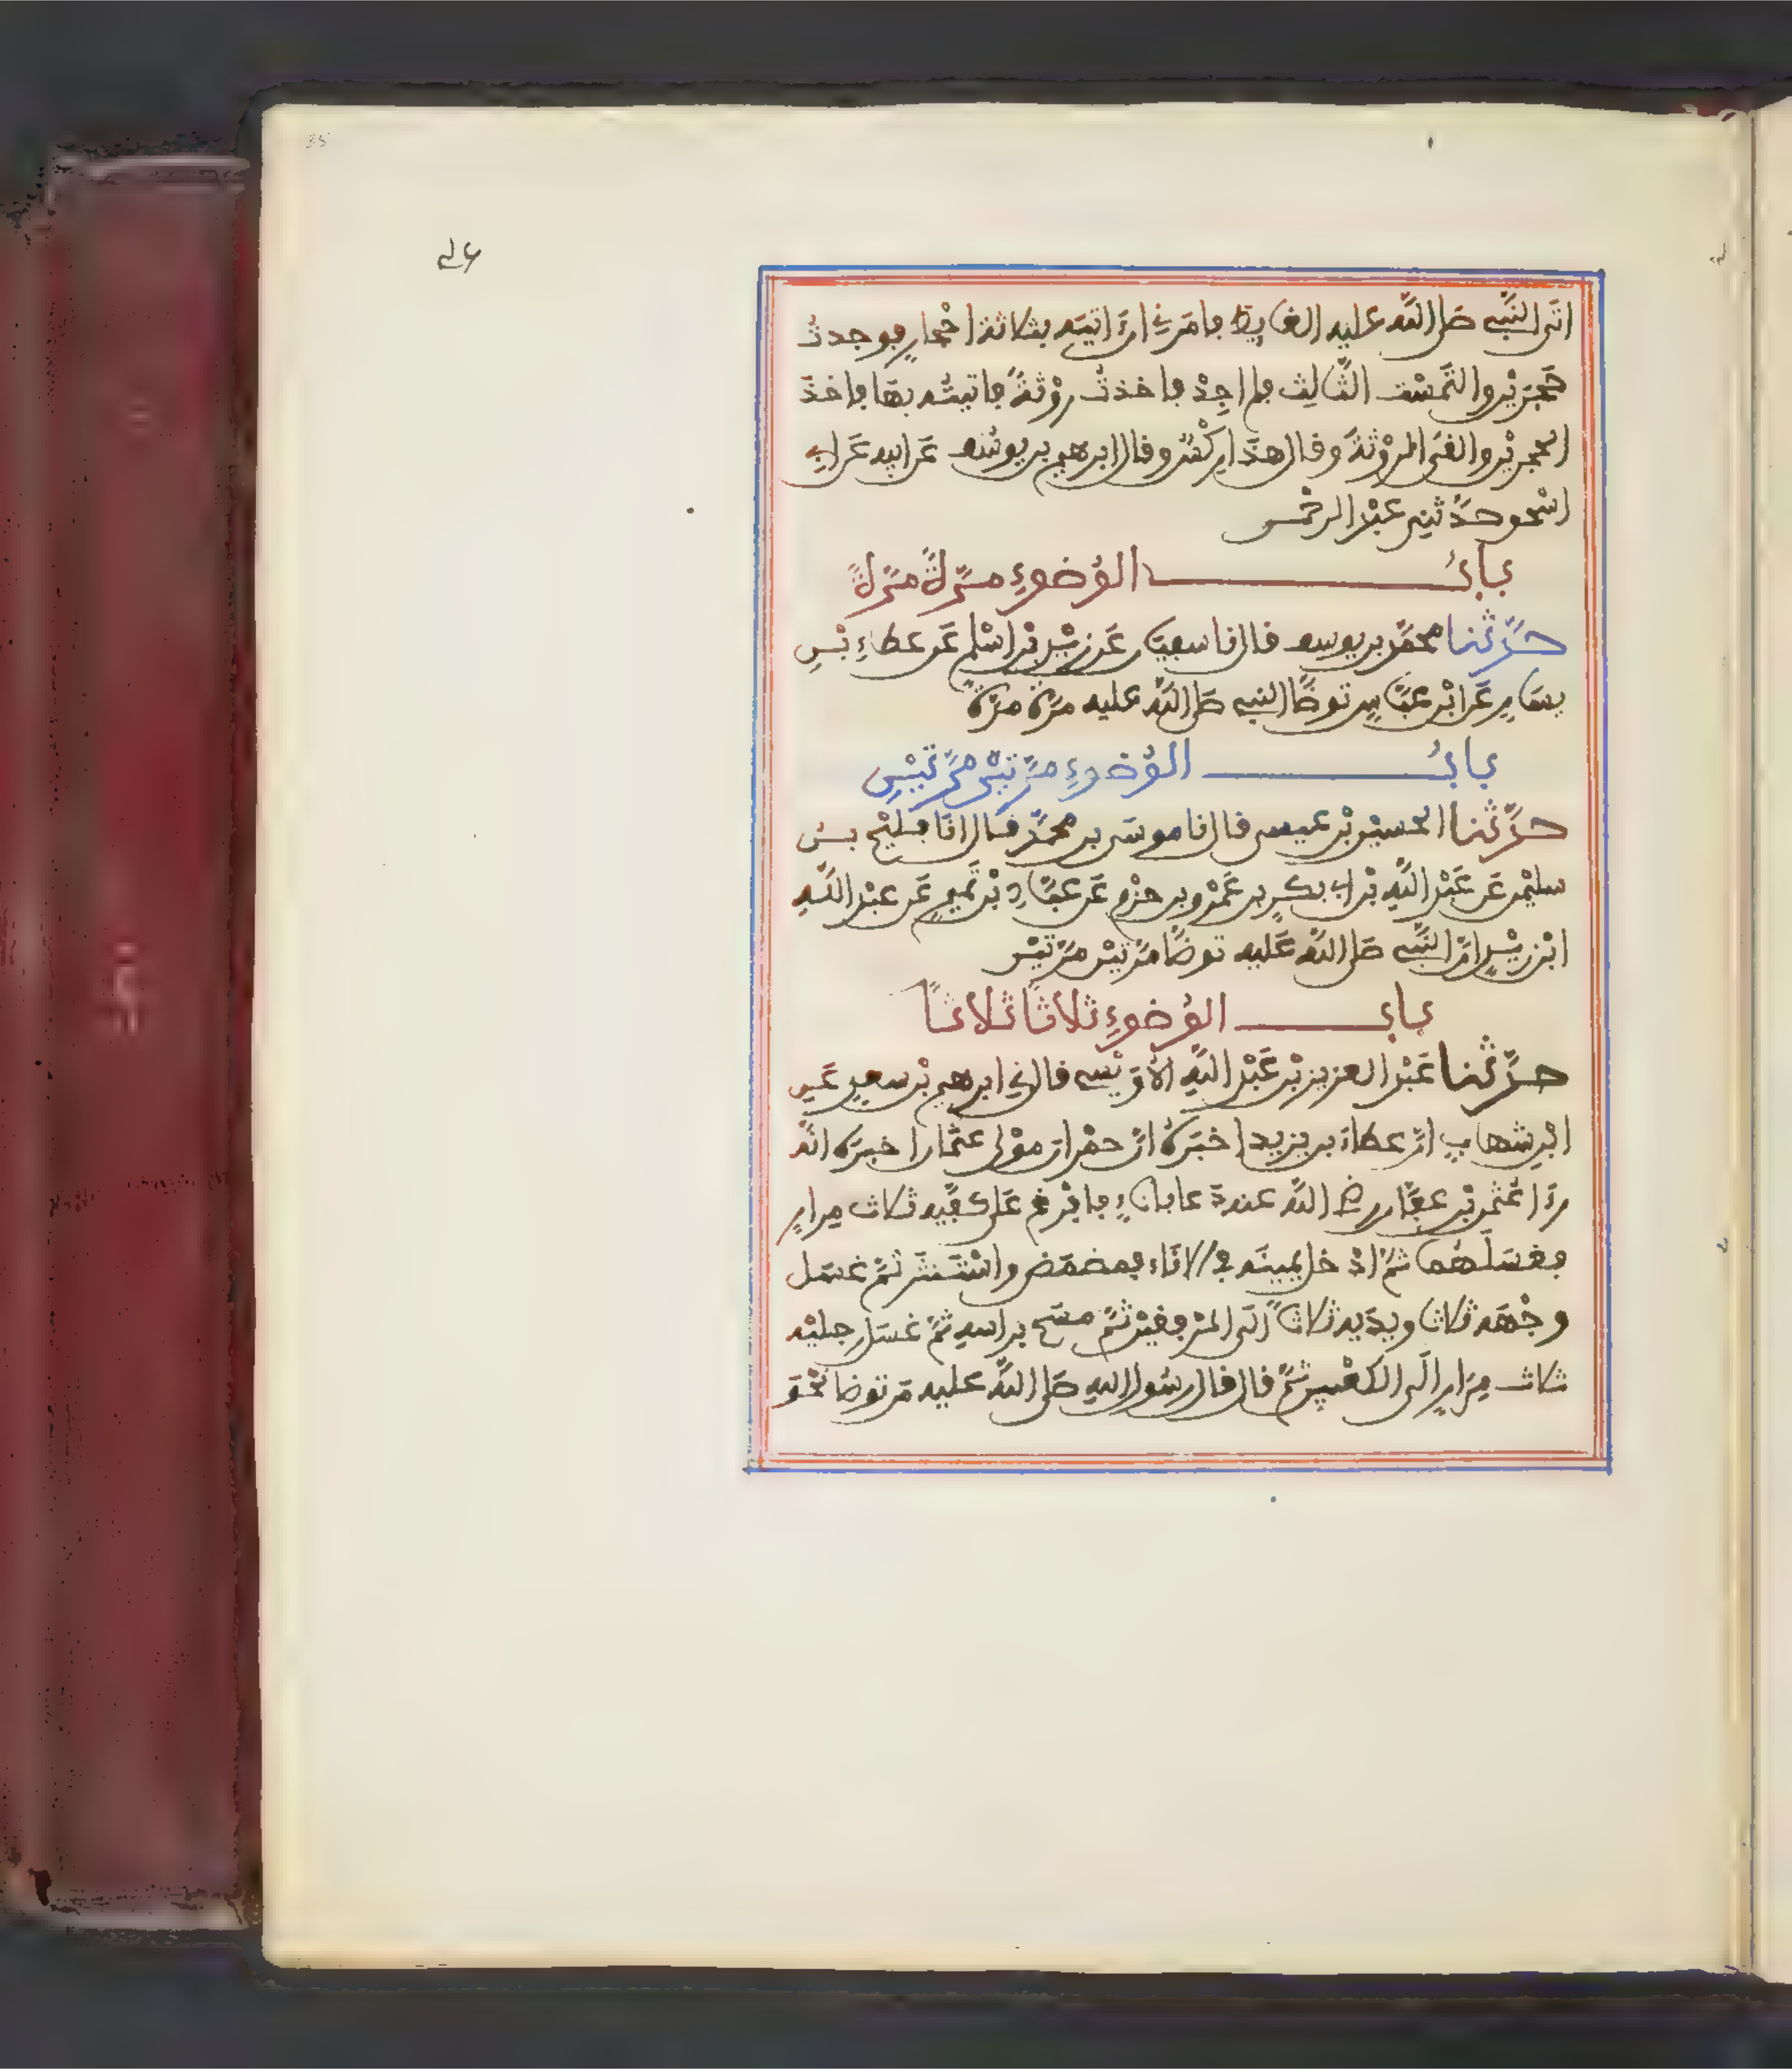 اتى النبي صلى الله عليه الغايط فامرني ان اتيه بثلاثة احجار فوجدت
حجرين والتمست الثالث فلم اجد فاخذت روثة فاتيته بها فاخذ
الحجرين والقى الروثة وقال هذا ركس وقال ابرهيم بن يوسف عن ابيه عن ابي
اسحق حدثني عبد الرحمن
باب الوضوء مرة مرة
حدثنا محمد بن يوسف قال نا سفين عن زيد بن اسلم عن عطاء بن
يسار عن ابن عباس توضا النبي صلى الله عليه مرة مرة
باب الوضوء مرتين مرتين
حدثنا الحسين بن عيسى قال نا موسى بن محمد قال انا فليح بن
سليمن عن عبد الله بن ابي بكر بن عمرو بن حزم عن عباد بن تميم عن عبد الله
ابن زيد ان النبي صلى الله عليه توضا مرتين مرتين
باب الوضوء ثلاثا ثلاثا
حدثنا عبد العزيز بن عبد الله الاويسي قال ني ابرهيم بن سعد عن
ابن شهاب ان عطاء بن يزيد اخبره ان حمران مولى عثمان اخبره انه
رءا عثمن بن عفان رضي الله عنه دعا باناء فافرغ على كفيه ثلاث مرار
فغسلهما ثم ادخل يمينه في الاناء فمضمض واستنثر ثم غسل
وجهه ثلاثا ويديه ثلاثا الى المرفقين ثم مسح براسه ثم غسل رجليه
ثلاث مرار الى الكعبين ثم قال قال رسول الله صلى الله عليه من توضا نحو